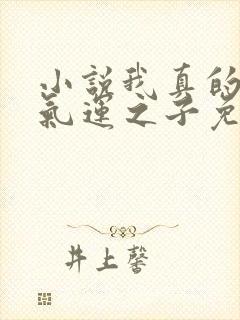 小説我真的
氣運之子免
井上馨